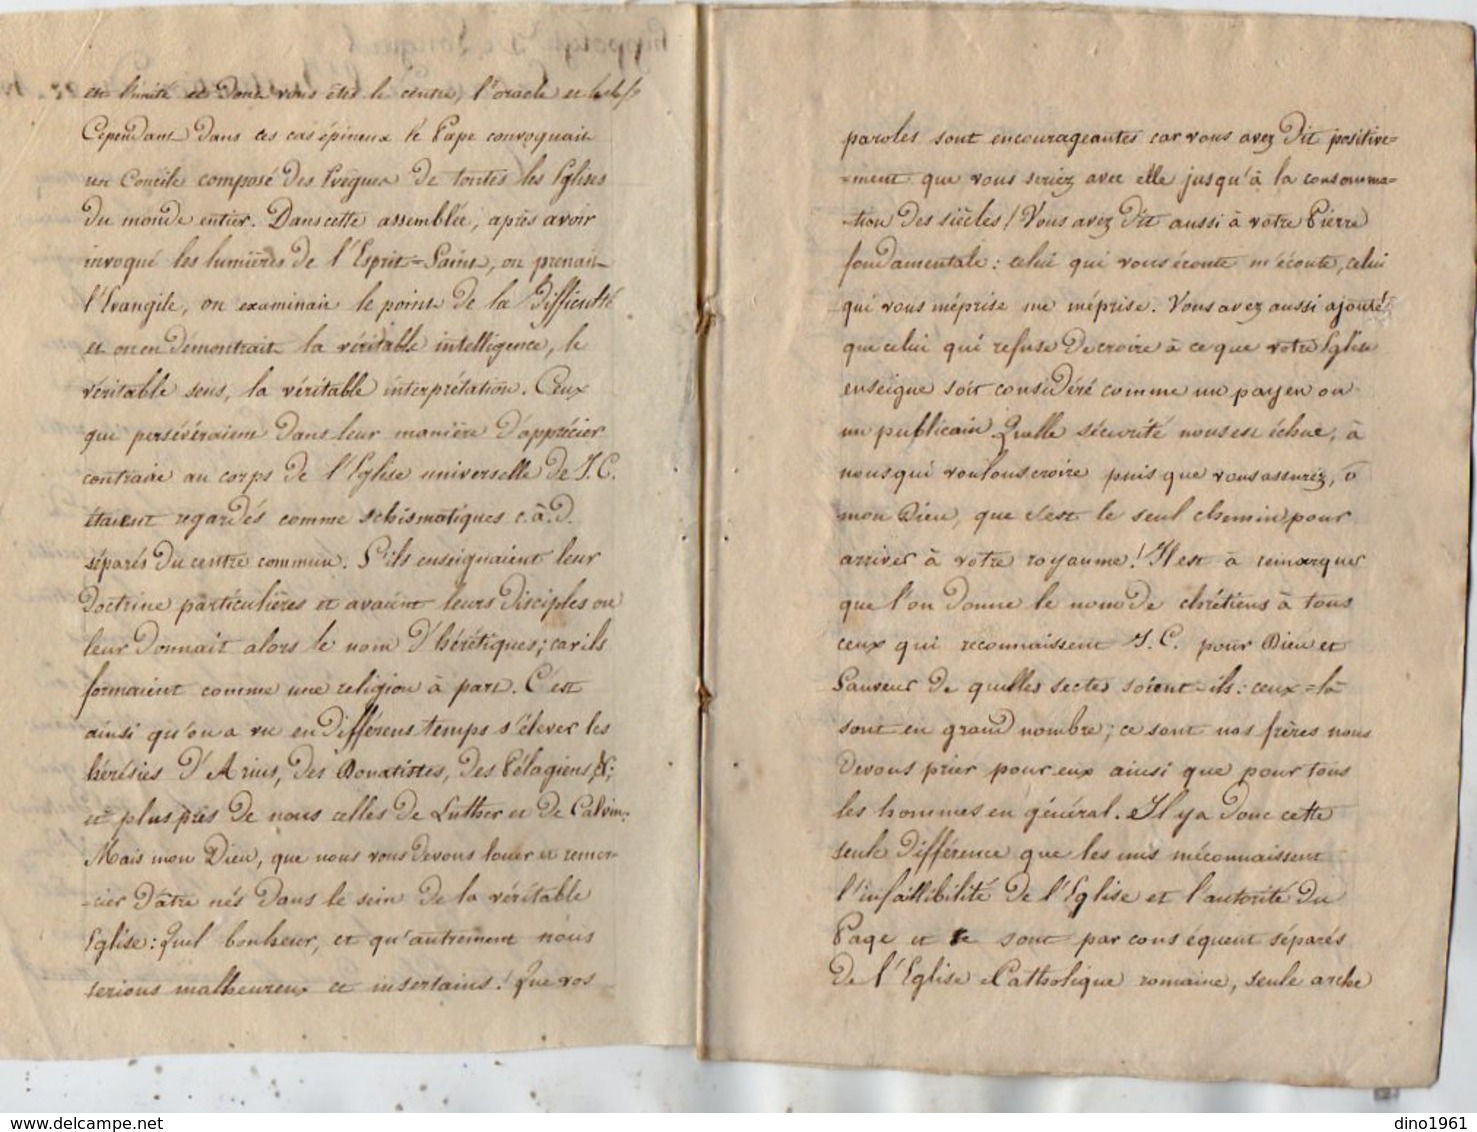 en l'unité et dont vous êtes le centre, l'oracle et le
Cependant dans ces cas épineux le Pape convoquait
un Concile composé des Evêques de toutes les Eglises
du monde entier. Dans cette assemblée, après avoir
invoqué les lumières de l'Esprit=Saint, on prenait
l'Evangile, on examinait le point de la difficulté
et on en démontrait la véritable intelligence, le
véritable sens, la véritable interprétation. Ceux
que persévéraient dans leur manière d'apprécier
contraire au corps de l'Eglise universelle de J.C.
étaient regardés comme schismatiques c.à.d.
séparés du centre commun. S'ils enseignaient leur
doctrine particulières et avaient leurs disciples on
leur donnait alors le nom d'hérétiques; car ils
formaient comme une religion à part. C'est
ainsi qu'on a vu en différens temps s'élever les
hérésies d'Arius, des Donatistes, des Pélagiens, &;
et plus près de nous celles de Luther et de Calvin.
Mais mon Dieu, que nous vous devons louer et remer-
-cier d'être nés dans le sein de la véritable
Eglise: Quel bonheur, et qu'autrement nous
serions malheureux et insertains! Que vos
paroles sont encourageantes car vous avez dit positive=
=ment que vous seriez avec elle jusqu'à la consomma=
-tion des siècles! Vous avez dit aussi à votre Pierre
fondamentale: celui qui vous écoute m'écoute, celui
qui vous méprise me méprise. Vous avez aussi ajouté
que celui qui refuse de croire à ce que votre Eglise
enseigne soit considéré comme un payen ou
un publicain. Quelle sécurité nous est échue, à
nous qui voulons croire puis que vous assurez, ô
mon Dieu, que c'est le seul chemin pour
arriver à votre royaume! Il est à remarquer
que l'on donne le nom de chrétiens à tous
ceux qui reconnaissent J.C. pour Dieu et
Sauveur de quelles sectes soient-ils: ceux=là
sont en grand nombre; ce sont nos frères nous
devons prier pour eux ainsi que pour tous
les hommes en général. Il y a donc cette
seule différence que les uns méconnaissent
l'infaillibilité de l'Eglise et l'autorité du
Pape et sont par conséquent séparés
de l'Eglise Catholique romaine, seule arche
dino1961